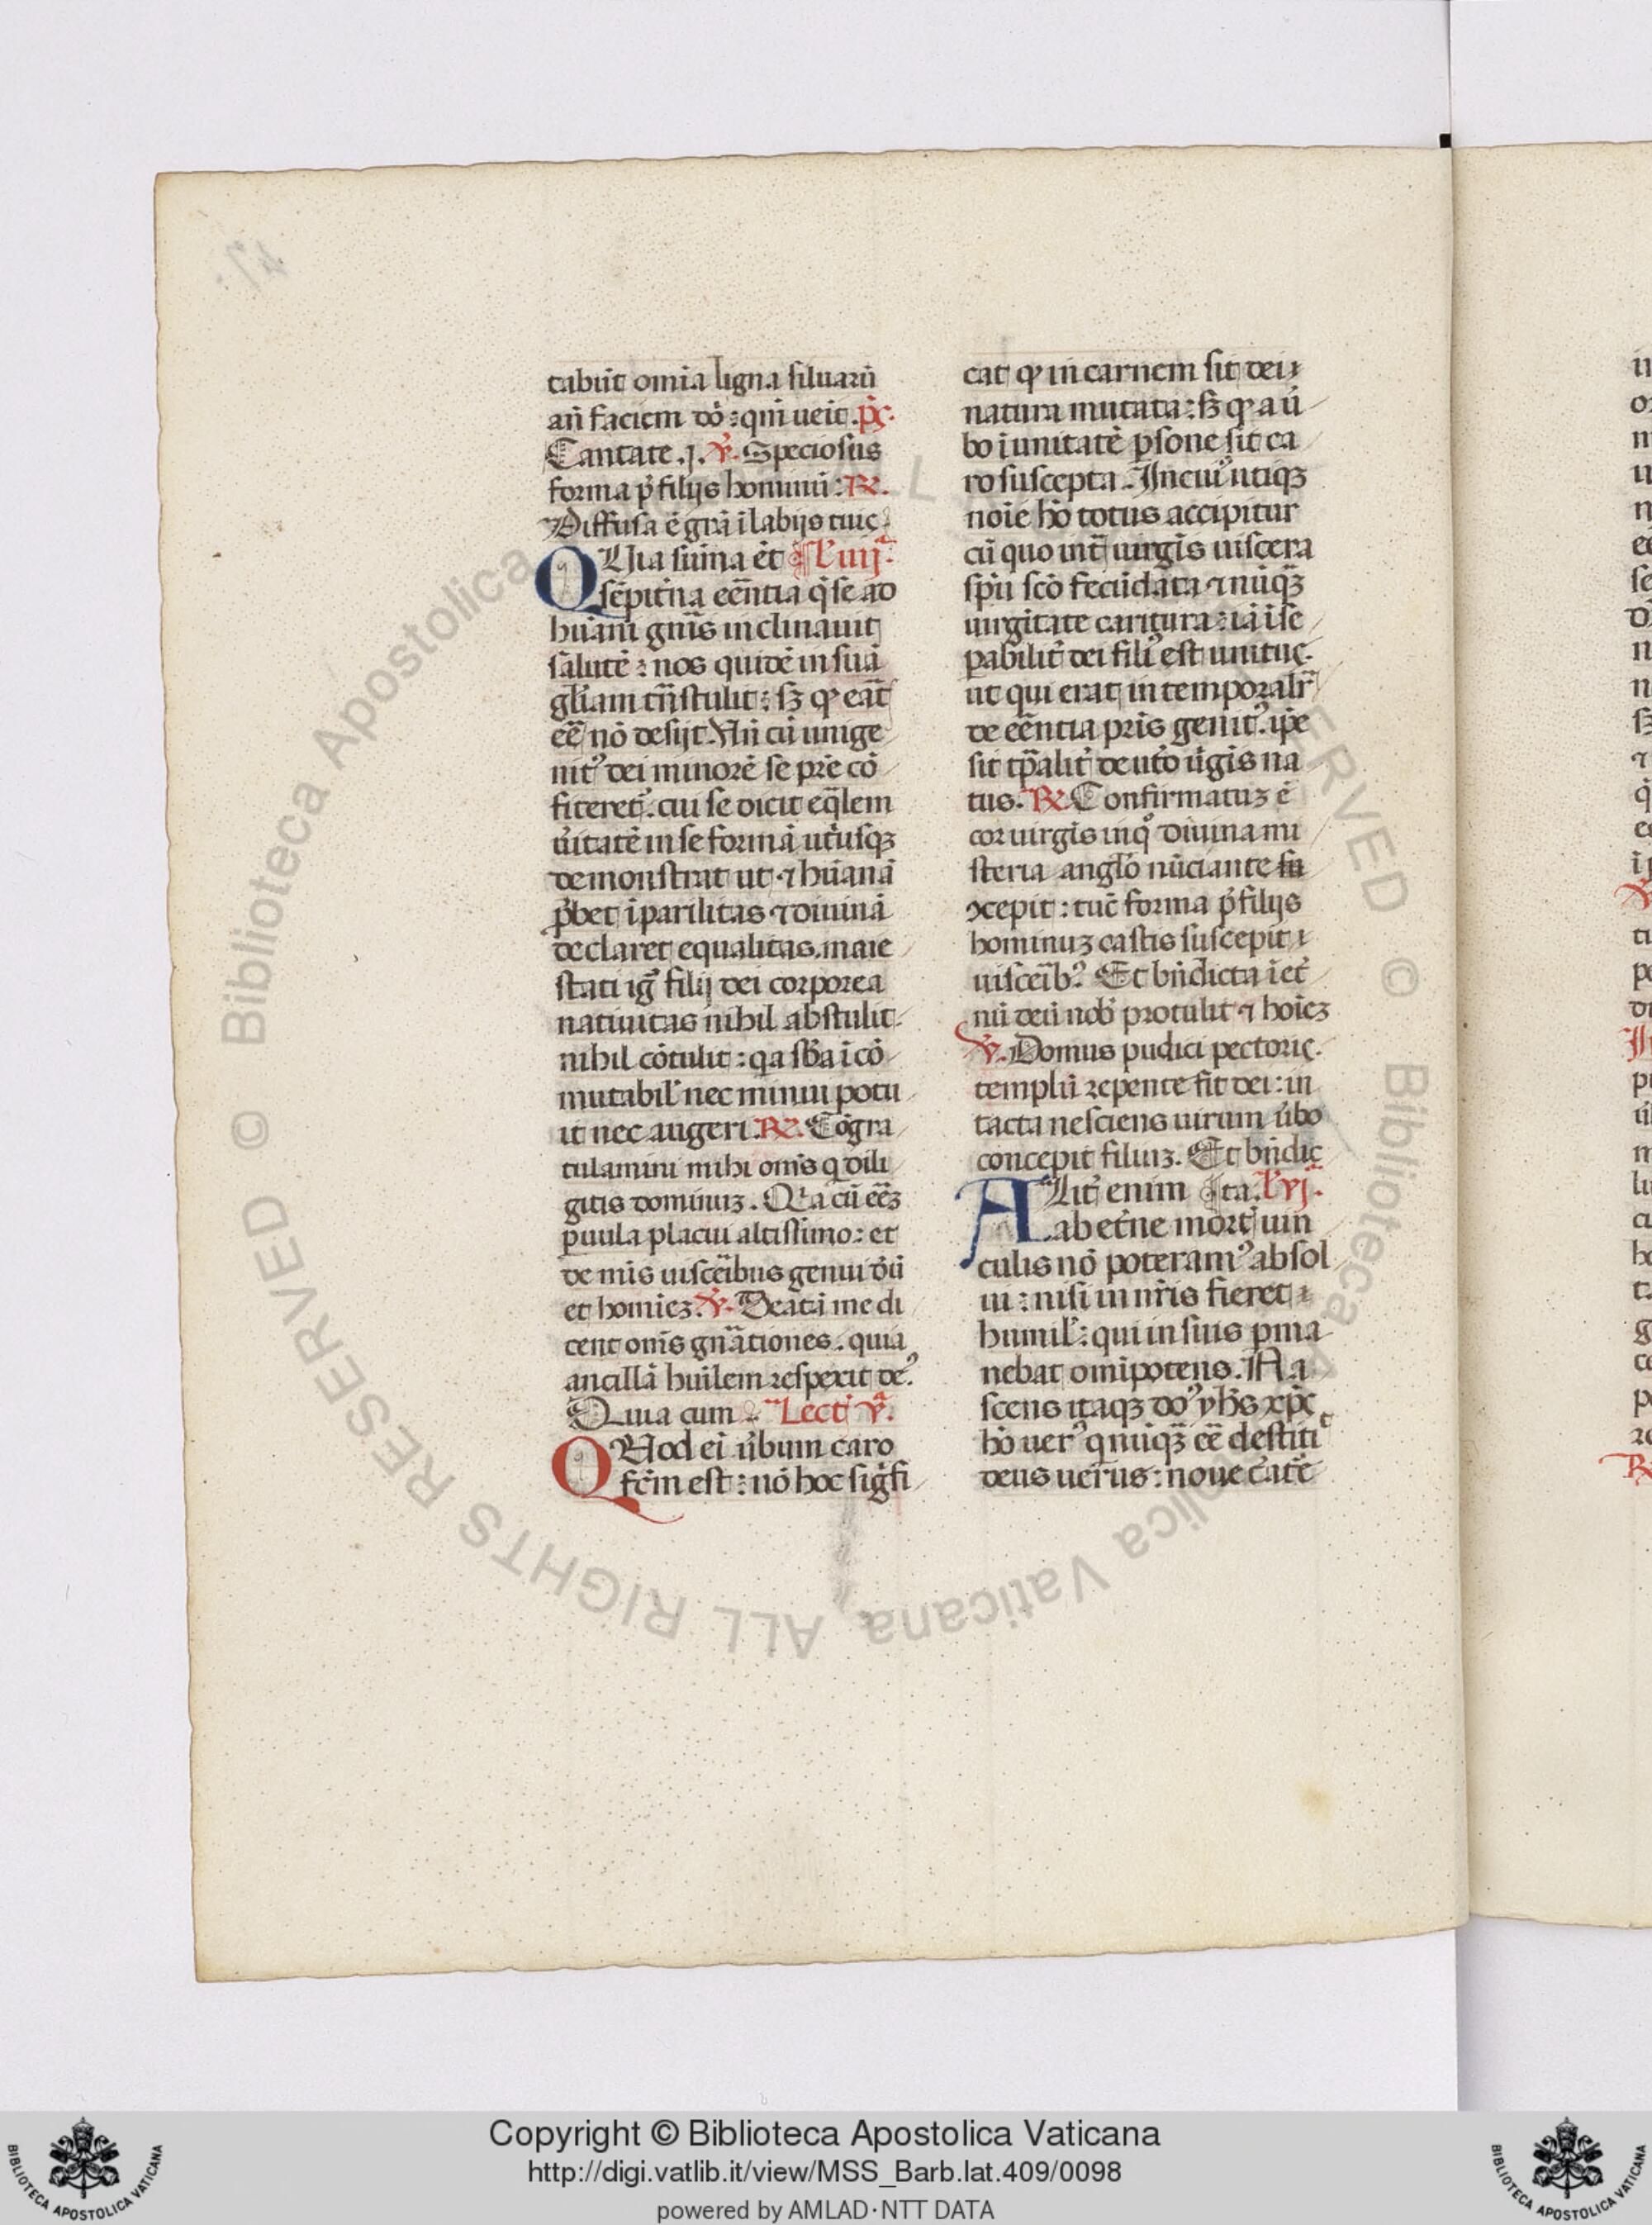 tabūt omīa ligna siluarū
an̄ faciem dō : qm̄ ueīt . ps̄.
Cantate . j . ℣. Speciosus
forma p̄ filijs hominū : ℞.
Diffusa ē grā ī labijs tuis
QUia sūma et lͦ iiijª.
sēpit̄na eēntia q̄ se ad
hūani gn̄is inclinauit
salutē : nos quidē in suā
gl̄iam trn̄stulit : sꝫ qͩ erat
eē nō desijt . Vn̄ cū unige
nitꝰ dei minorē se pr̄e cō
fiteretᷣ . cui se dicit eq̄lem
ūitatē in se formā ut̄iusqꝫ
demonstrat ut ⁊ hūanā
p̄bet īparilitas ⁊ diuinā
declaret equalitas . maie
stati igᷣ filij dei corporea
natiuitas nihil abstulit
nihil cōtulit : qa sb̄a īcō
mutabil̄ nec minui potu
it nec augeri . ℞. Cōgra
tulamini mihi om̄s q̄ dili
gitis dominuꝫ . Qa cū eēꝫ
ꝑuula placui altissimo : et
de m̄is uiscēibus genui dūū
et homieꝫ . ℣. Beatā me di
cent om̄s gn̄ationes . quia
ancillā hūilem respexit deꝰ.
Quia cum . Lectͦ vª.
QUod ei ūbum caro
fcm̄ est : nō hoc sigͥfi
cat qͩ in carnem sit dei
natura mutata : sꝫ qͩ a ū
bo ī unitatē ꝑsone sit ca
ro suscepta . In cuiꝰ utiqꝫ
noīe hō totus accipitur
cū quo int̄ uirgīs uiscera
spū scō fecūdata ⁊ nūqꝫ
uirgitate caritura : tā īse
ꝑabilit̄ dei filiꝰ est unitus.
ut qui erat intemporalr̄
de eēntia pr̄is genitꝰ . ip̄e
sit tp̄alit̄ de utō ūgīs na
tus . ℞. Confirmatuꝫ ē
cor uirgīs inqͦ diuina mi
steria anglō nūciante su
ꝯcepit : tūc forma p̄ filijs
hominuꝫ castis suscepit
uiscēibꝰ . Et bn̄dicta ī et̄
nū deū nob̄ protulit ⁊ hoieꝫ
℣. Domus pudici pectoris .
templū repente fit dei : in
tacta nesciens uirum ūbo
concepit filiuꝫ . Et bn̄dic
ALit̄ enim lͦ vjª.
ab et̄ne mortͥ uin
culis nō poteramꝰ absol
ui : nisi in nr̄is fieret
humil̄ : qui in suis ꝑma
nebat omīpotens . Na
scens itaqꝫ doꝰ yh̄s xp̄s
hō uerꝰ q̄ nūqꝫ eē destitit
deus uerus : noue c̄atē